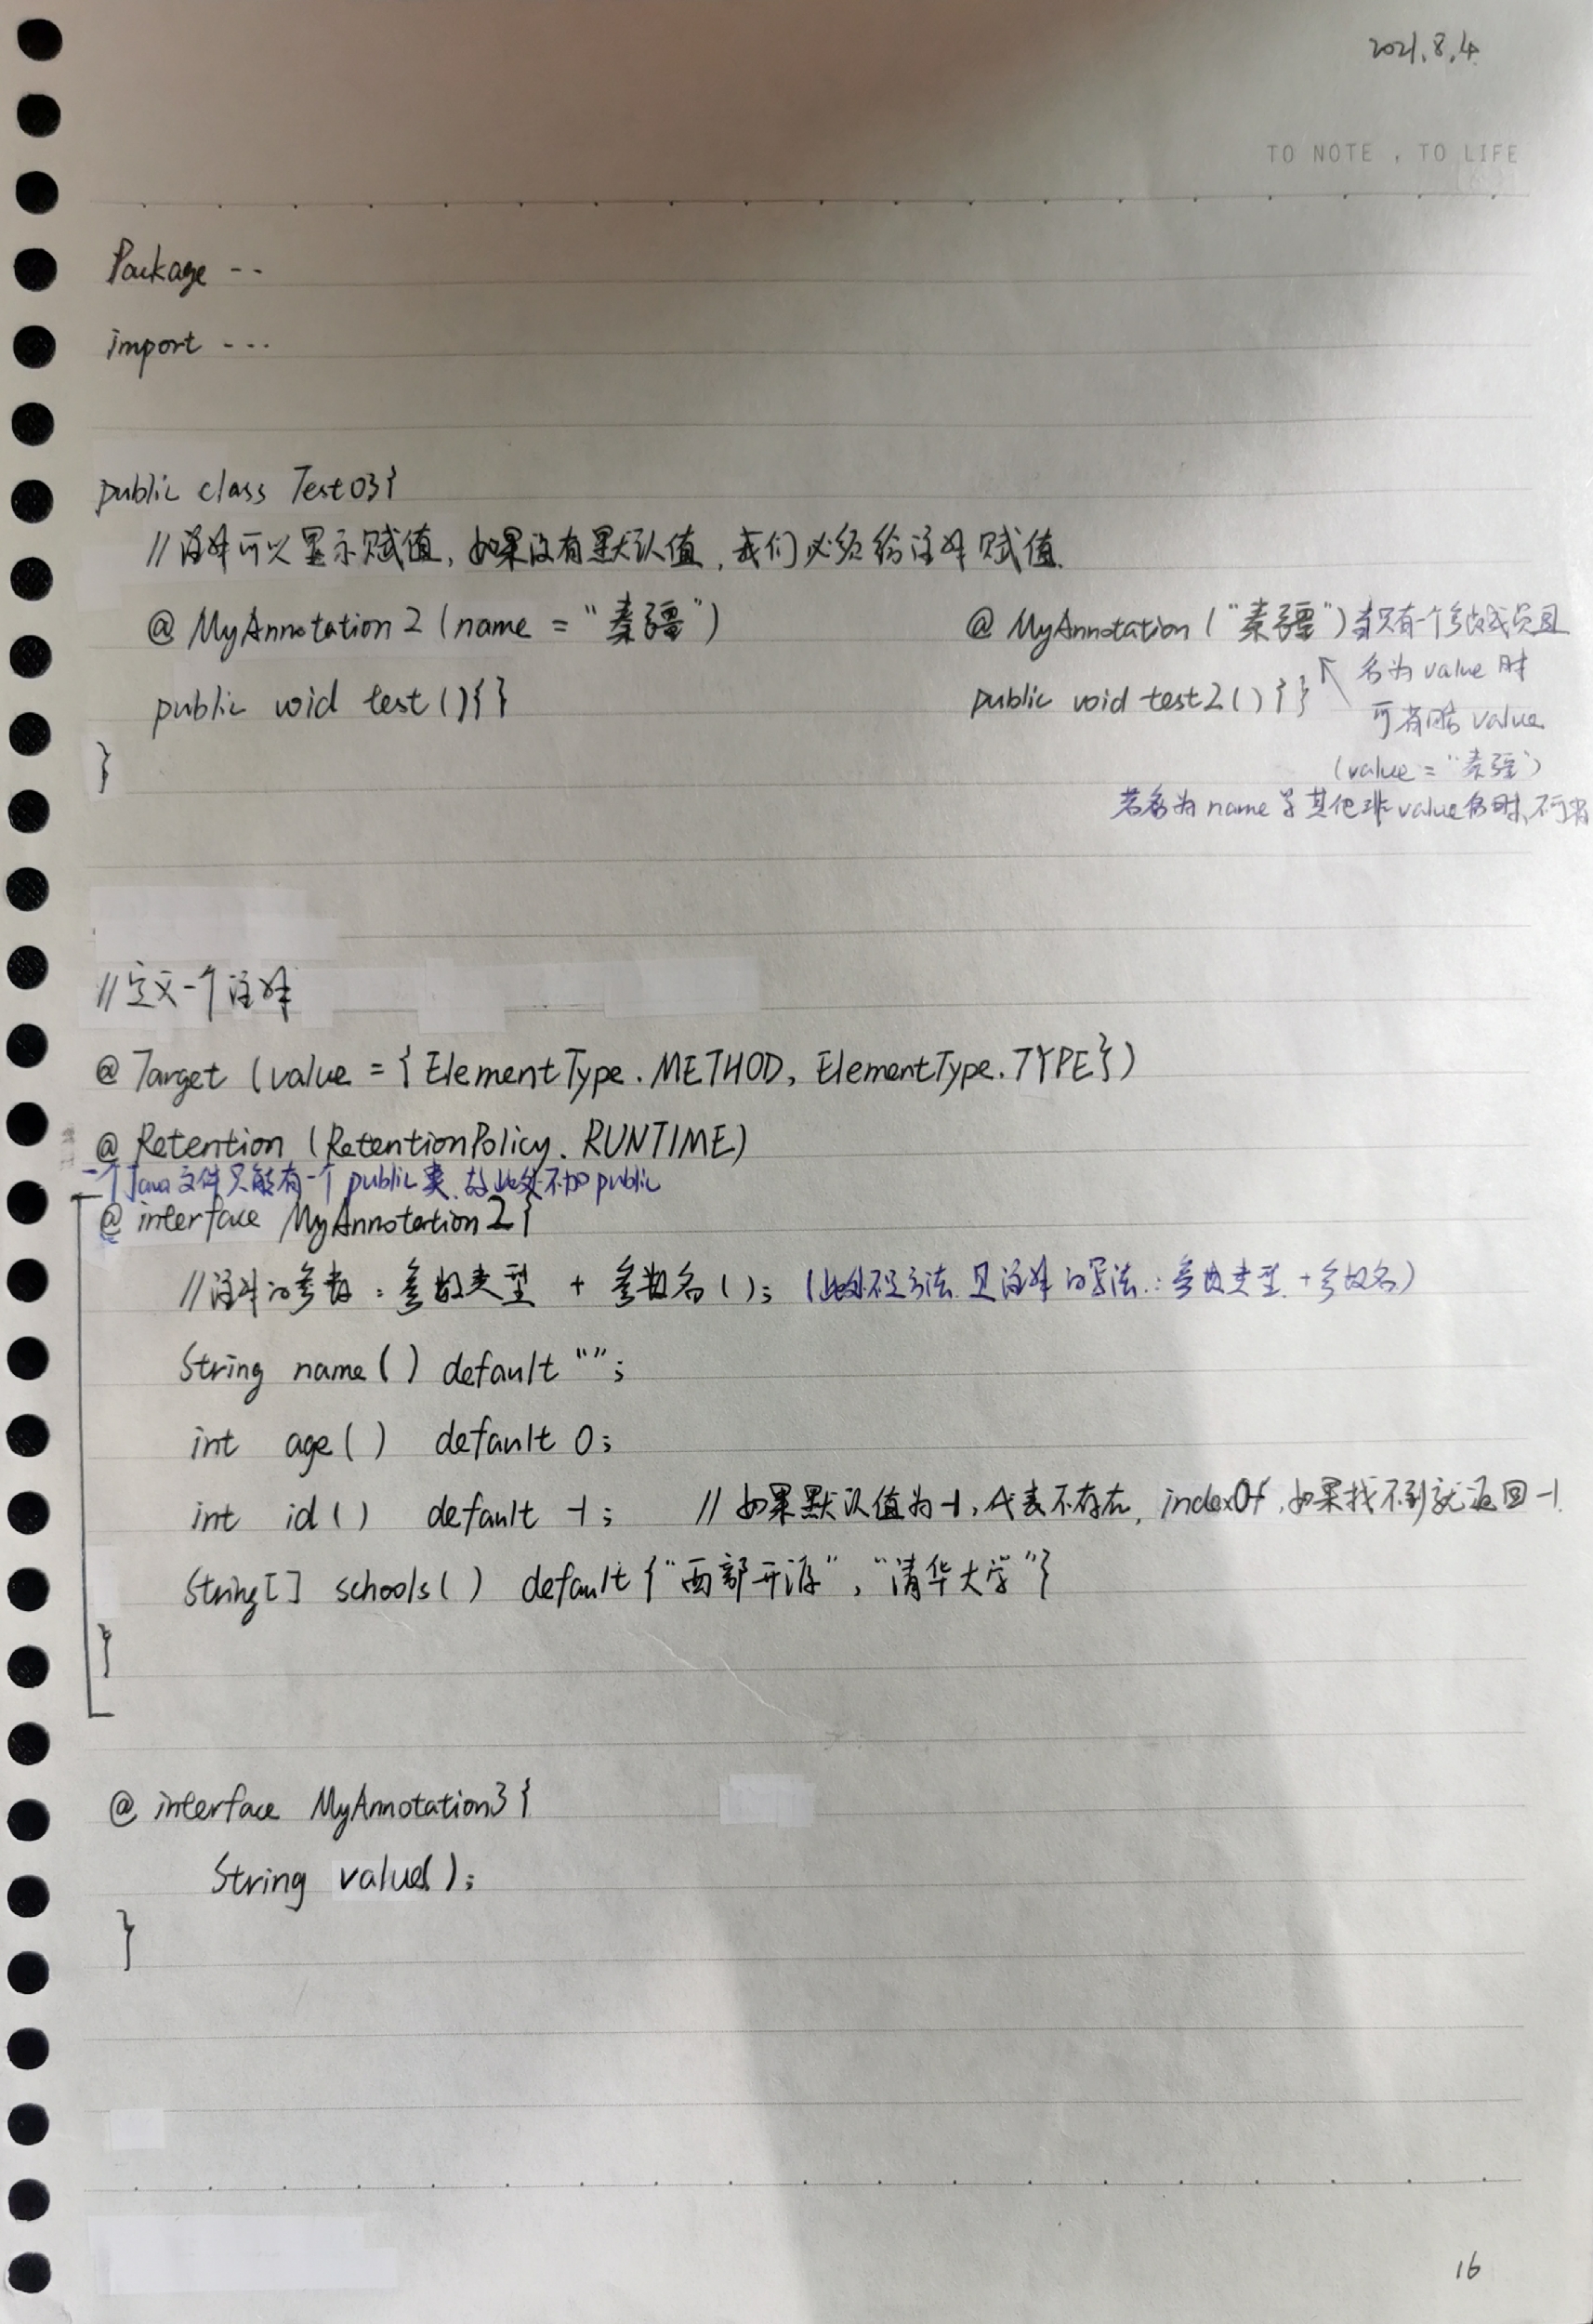 2021.8.4
TO NOTE , TO LIFE
Package --
import ---
public class Test03{
//注解可以显示赋值,如果没有默认值,我们必须给注解赋值.
@ MyAnnotation2 (name = "秦疆")
@ MyAnnotation ("秦疆") 当只有一个参数成员且
名为 value 时
public void test(){}
public void test2(){}
可省略 value
}
(value = "秦疆")
若名为 name 等其他非 value 名时,不可省
//定义一个注解
@ Target (value = { ElementType.METHOD, ElementType.TYPE})
@ Retention (RetentionPolicy. RUNTIME)
一个Java文件只能有一个 public 类,故此处不加 public
@ interface MyAnnotation2{
//注解的参数: 参数类型 + 参数名(); (此处不是方法 是注解的写法: 参数类型 + 参数名)
String name() default "";
int age() default 0;
int id() default -1; // 如果默认值为-1,代表不存在, indexOf,如果找不到就返回-1.
String[] schools() default {"西部开源", "清华大学"}
}
@ interface MyAnnotation3{
String value();
}
16